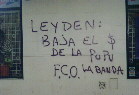 LEYDEN:
BAJA EL $
DE LA
F.C.O. LA BANDA